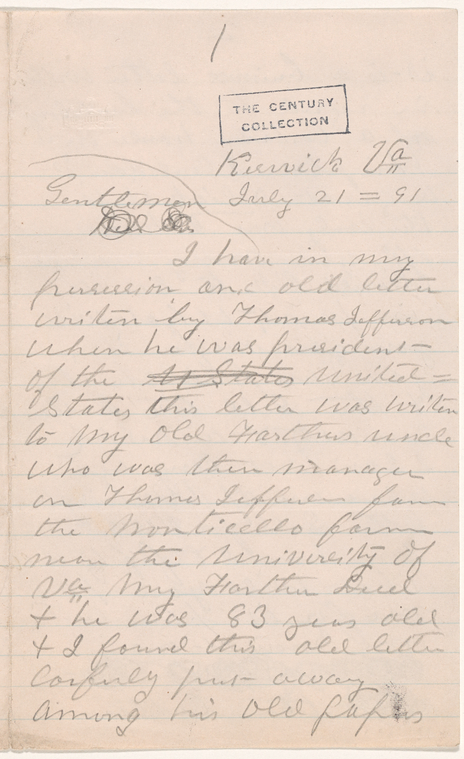 THE CENTURY
COLLECTION
Keswick Va
Gentlemen July 21 = 91
I have in my
possession and old letter
writen by Thomas Jefferson
when he was president
of the U States United =
States this letter was writen
to my old Farthers uncle
who was then manager
on Thomas Jefferson farm
the Monticello farm
near the University of
Va My Farther Died
+ he was 83 years old
+ I found this old letter
carfuly put away
among his old papers